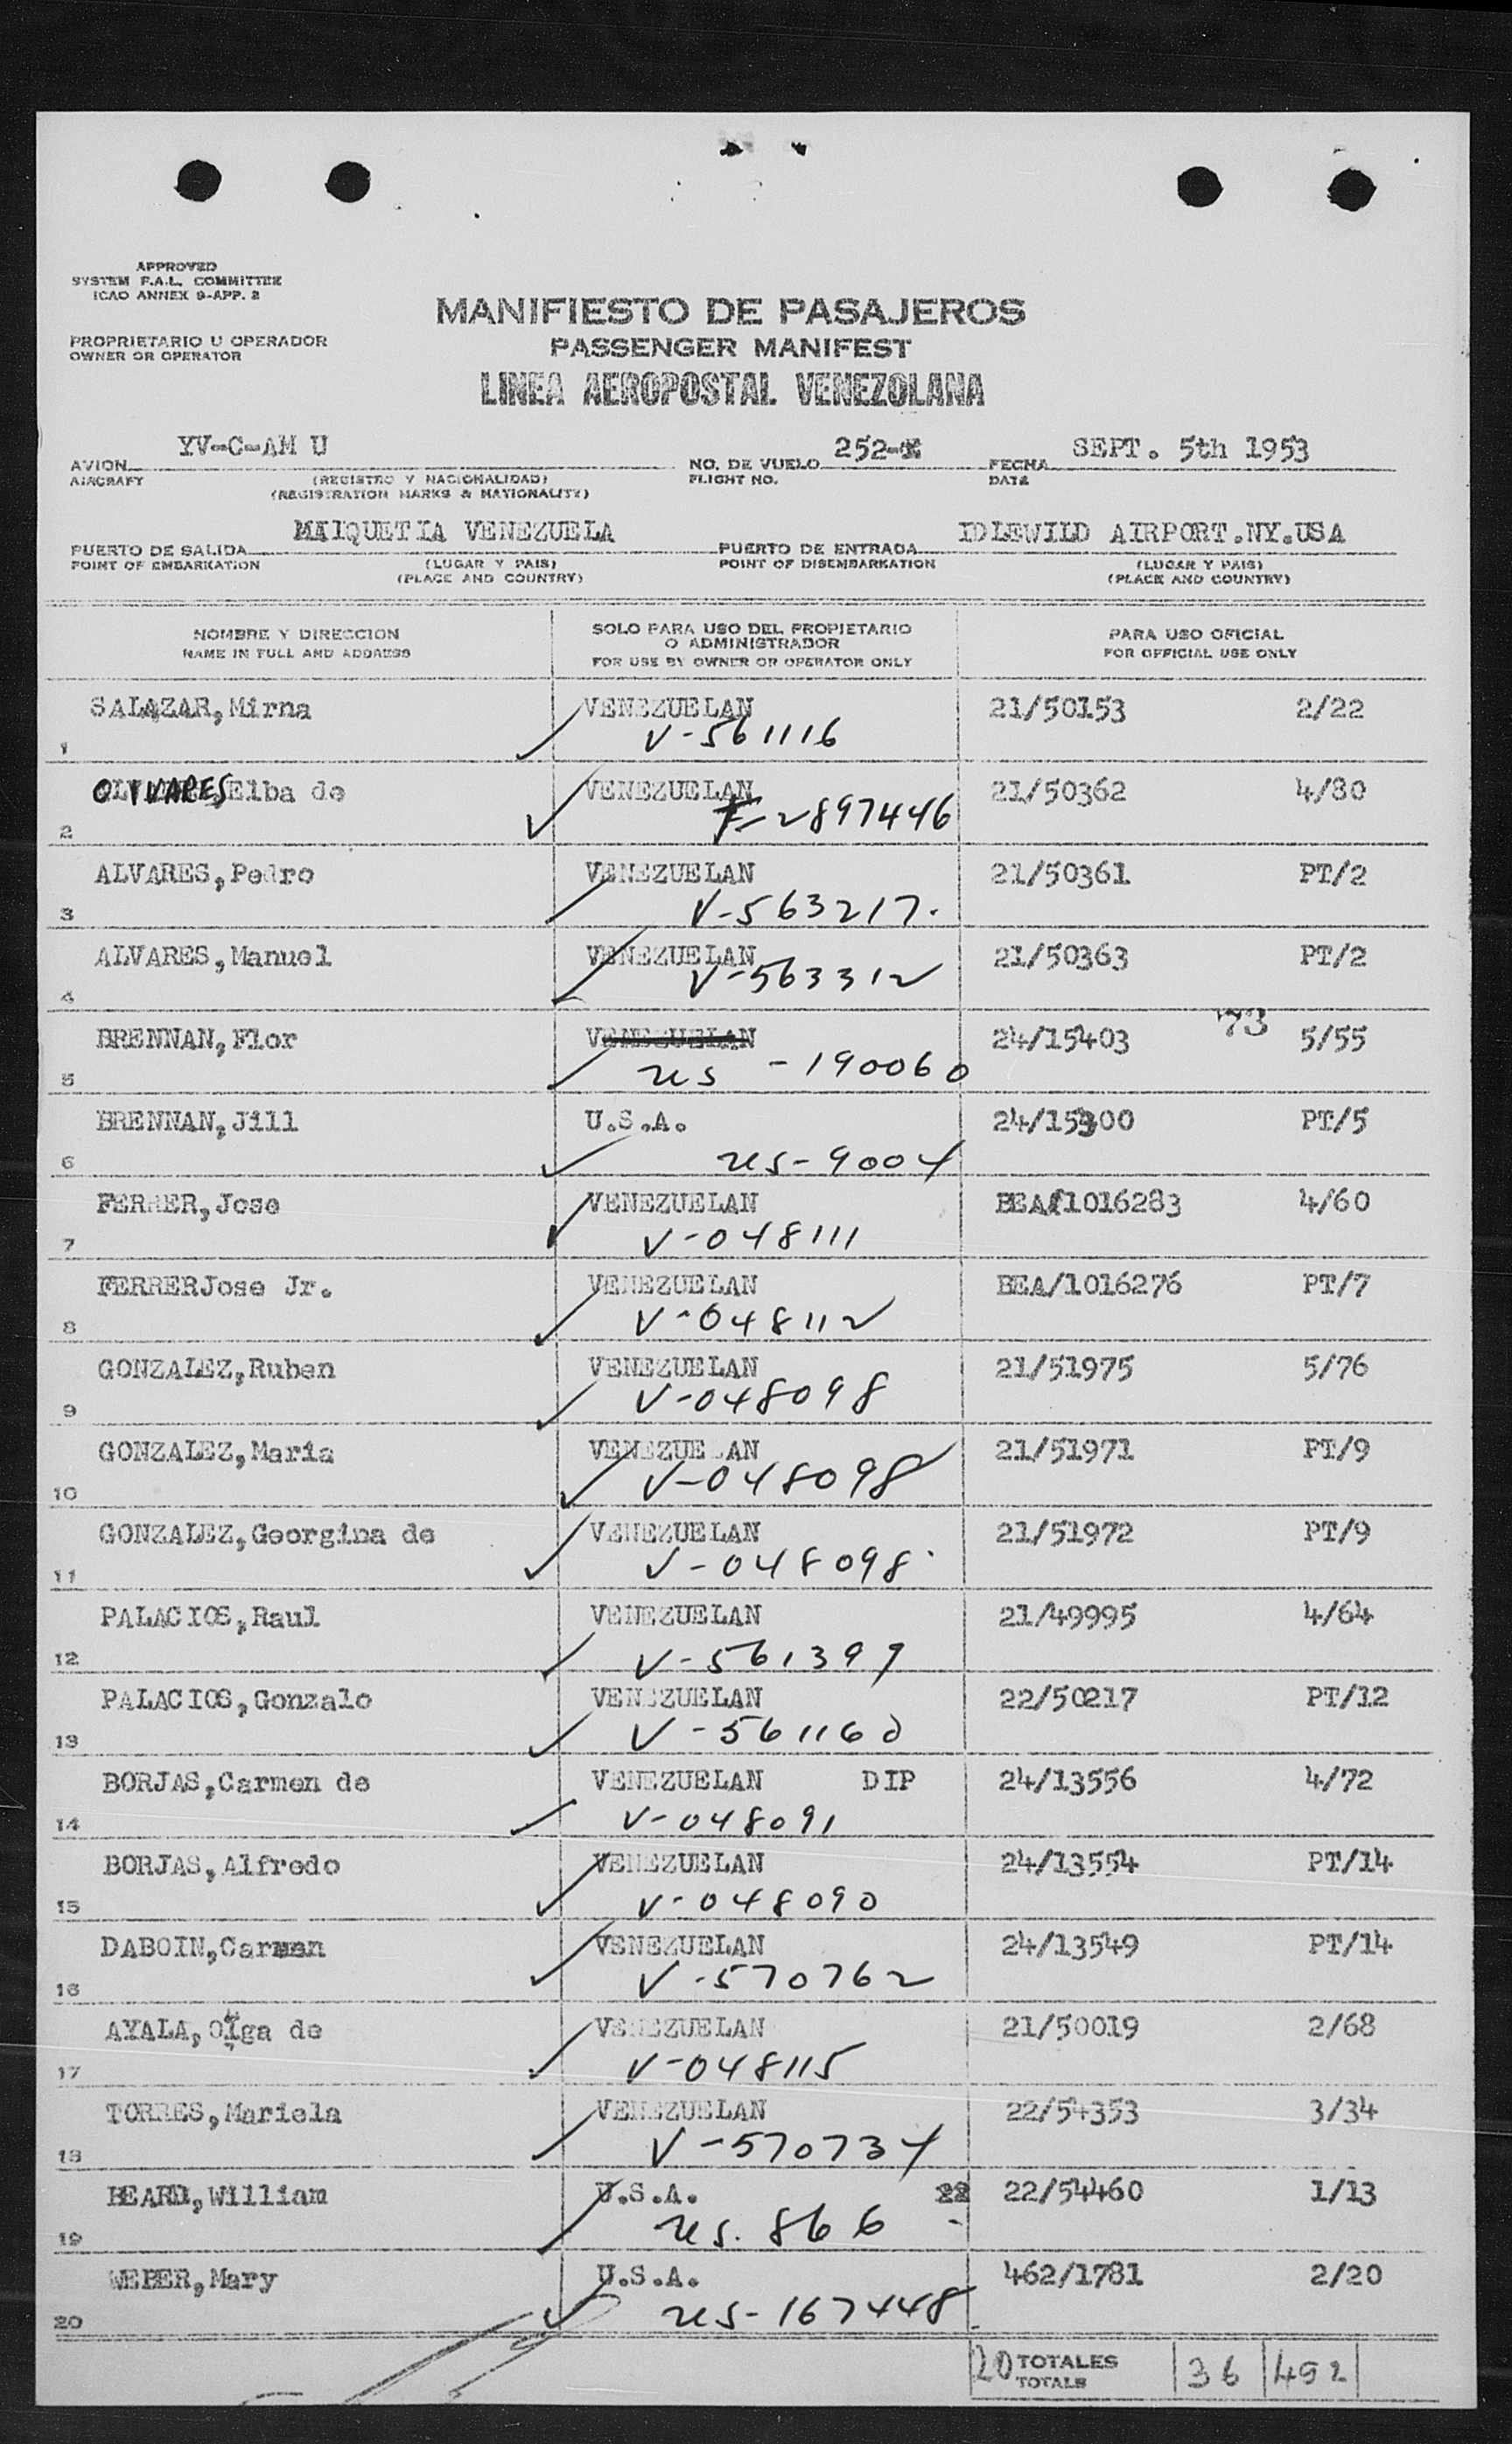 APPROVED
SYSTEM F.A.L. COMMITTEE
ICAO ANNEX 9-APP. 2
MANIFIESTO DE PASAJEROS
PROPRIETARIO U OPERADOR
OWNER OR OPERATOR
PASSENGER MANIFEST
LINEA AEROPOSTAL VENEZOLANA
AVION YV-C-AM U NO. DE VUELO 252- FECHA SEPT. 5th 1953
AIRCRAFT (REGISTRO Y NACIONALIDAD) FLIGHT NO. DATE
(REGISTRATION MARKS & NATIONALITY)
PUERTO DE SALIDA MAIQUETIA VENEZUELA PUERTO DE ENTRADA IDLEWILD AIRPORT.NY.USA
POINT OF EMBARKATION (LUGAR Y PAIS) POINT OF DISEMBARKATION (LUGAR Y PAIS)
(PLACE AND COUNTRY) (PLACE AND COUNTRY)
NOMBRE Y DIRECCION SOLO PARA USO DEL PROPIETARIO PARA USO OFICIAL
O ADMINISTRADOR
NAME IN FULL AND ADDRESS FOR USE BY OWNER OR OPERATOR ONLY FOR OFFICIAL USE ONLY
SALAZAR,Mirna VENEZUELAN 21/50153 2/22
1 V-561116
OLIVARES,Elba de VENEZUELAN 21/50362 4/80
2 F-2897446
ALVARES,Pedro VENEZUELAN 21/50361 PT/2
3 V-563217.
ALVARES,Manuel VENEZUELAN 21/50363 PT/2
4 V-563312
BRENNAN,Flor VENEZUELAN 24/15403 73 5/55
5 us -190060
BRENNAN,Jill U.S.A. 24/15300 PT/5
6 us-9004
FERRER,Jose VENEZUELAN BEA/1016283 4/60
7 V-048111
FERRERJose Jr. VENEZUELAN BEA/1016276 PT/7
8 V-048112
GONZALEZ,Ruben VENEZUELAN 21/51975 5/76
9 V-048098
GONZALEZ,Maria VENEZUELAN 21/51971 PT/9
10 V-048098
GONZALEZ,Georgina de VENEZUELAN 21/51972 PT/9
11 V-048098
PALACIOS,Raul VENEZUELAN 21/49995 4/64
12 V-561399
PALACIOS,Gonzalo VENEZUELAN 22/50217 PT/12
13 V-561160
BORJAS,Carmen de VENEZUELAN DIP 24/13556 4/72
14 V-048091
BORJAS,Alfredo VENEZUELAN 24/13554 PT/14
15 V-048090
DABOIN,Carmen VENEZUELAN 24/13549 PT/14
16 V-570762
AYALA,Olga de VENEZUELAN 21/50019 2/68
17 V-048115
TORRES,Mariela VENEZUELAN 22/54353 3/34
18 V-570734
BEARD,William U.S.A. 22 22/54460 1/13
19 us. 866
WEBER,Mary U.S.A. 462/1781 2/20
20 us-167448
20 TOTALES 36 492
TOTALS